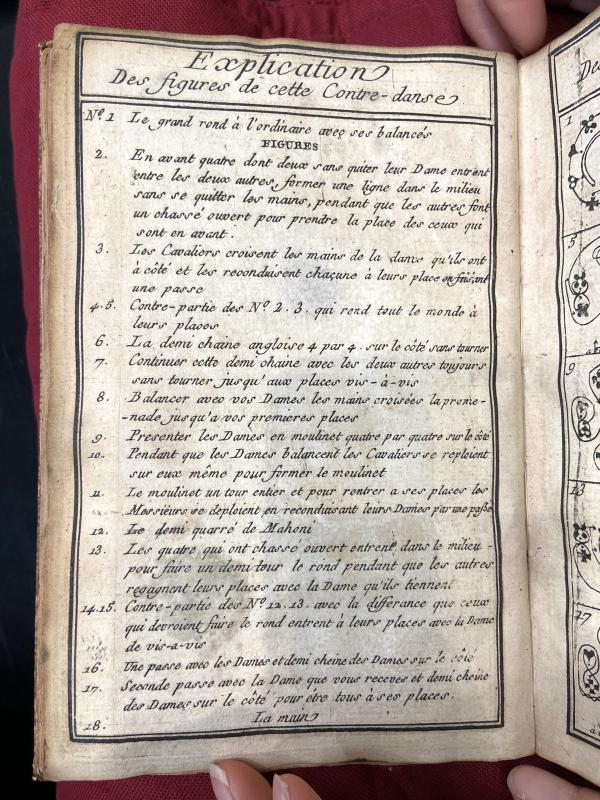 Explication
Des figures de cette Contre-danse
Nº. 1 Le grand rond à l'ordinaire aveç ses balancés
FIGURES
2. En avant quatre dont deux sans quiter leur Dame entrent
entre les deux autres, former une ligne dans le milieu
sans se quitter les mains, pendant que les autres font
un chassé ouvert pour prendre la place des ceux qui
sont en avant.
3. Les Cavaliers croisent les mains de la dame qu'ils ont
à côté et les reconduisent chaçune à leurs place en faisant
une passe
4.5. Contre-partie des Nº 2.3. qui rend tout le monde à
leurs places
6. La demi chaine angloise 4 par 4. sur le côté sans tourner
7. Continuer cette demi chaine avec les deux autres toujours
sans tourner jusqu'aux places vis-à-vis
8. Balancer avec vos Dames les mains croisées la prome-
-nade jusqu'a vos premieres places
9. Presenter les Dames en moulinet quatre par quatre sur le côté
10. Pendant que les Dames balancent les Cavaliers se reploient
sur eux même pour former le moulinet
11. Le moulinet un tour entier et pour rentrer a ses places les
Messieurs se deploient en reconduisant leurs Dames par une passe
12. Le demi quarré de Mahoni
13. Les quatre qui ont chassé ouvert entrent dans le milieu -
pour faire un demi tour le rond pendant que les autres
regagnent leurs places avec la Dame qu'ils tiennent
14.15. Contre-partie des Nº. 12.13. avec la differance que ceux
qui devroient faire le rond entrent à leurs places avec la Dame
de vis-a-vis
16. Une passe avec les Dames et demi cheine des Dames sur le côté
17. Seconde passe avec la Dame que vous receves et demi cheine
des Dames sur le côté pour être tous à ses places.
18. La main
De
1
5
9
13
17